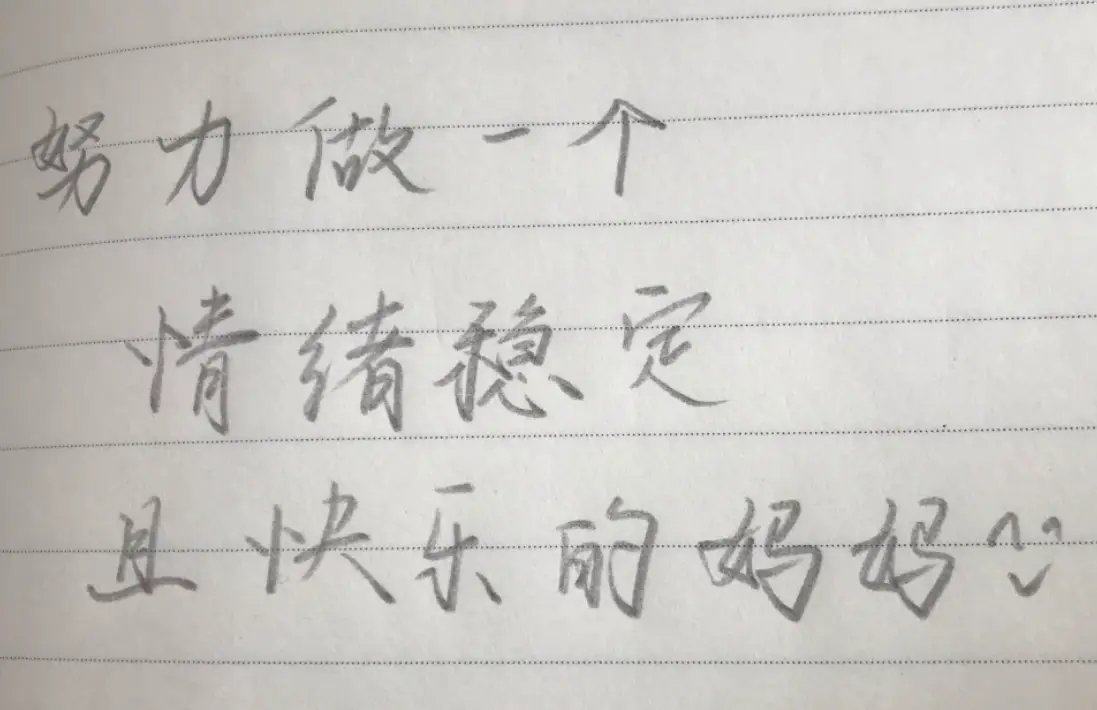 努力做一个
情绪稳定
且快乐的妈妈